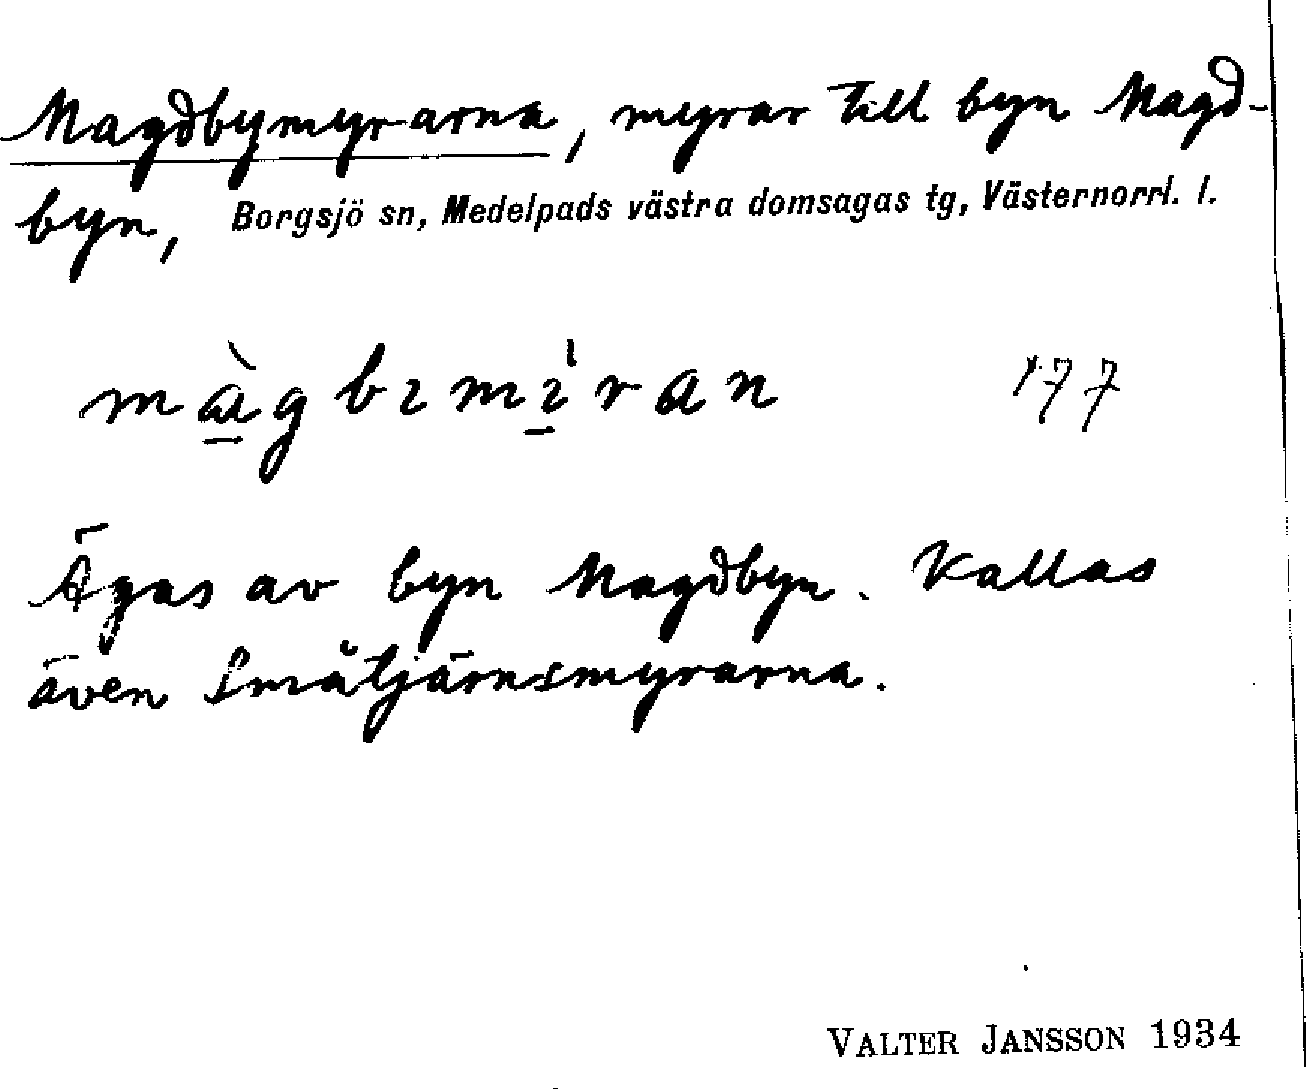 Magdbymyrarna, myrar till byn Magd-
byn, Borgsjö sn, Medelpads västra domsagas tg, Västernorrl. l.
màgbımı̀ran 177
Ägas av byn Magdbyn. Kallas
även Småtjärnsmyrarna.
VALTER JANSSON 1934